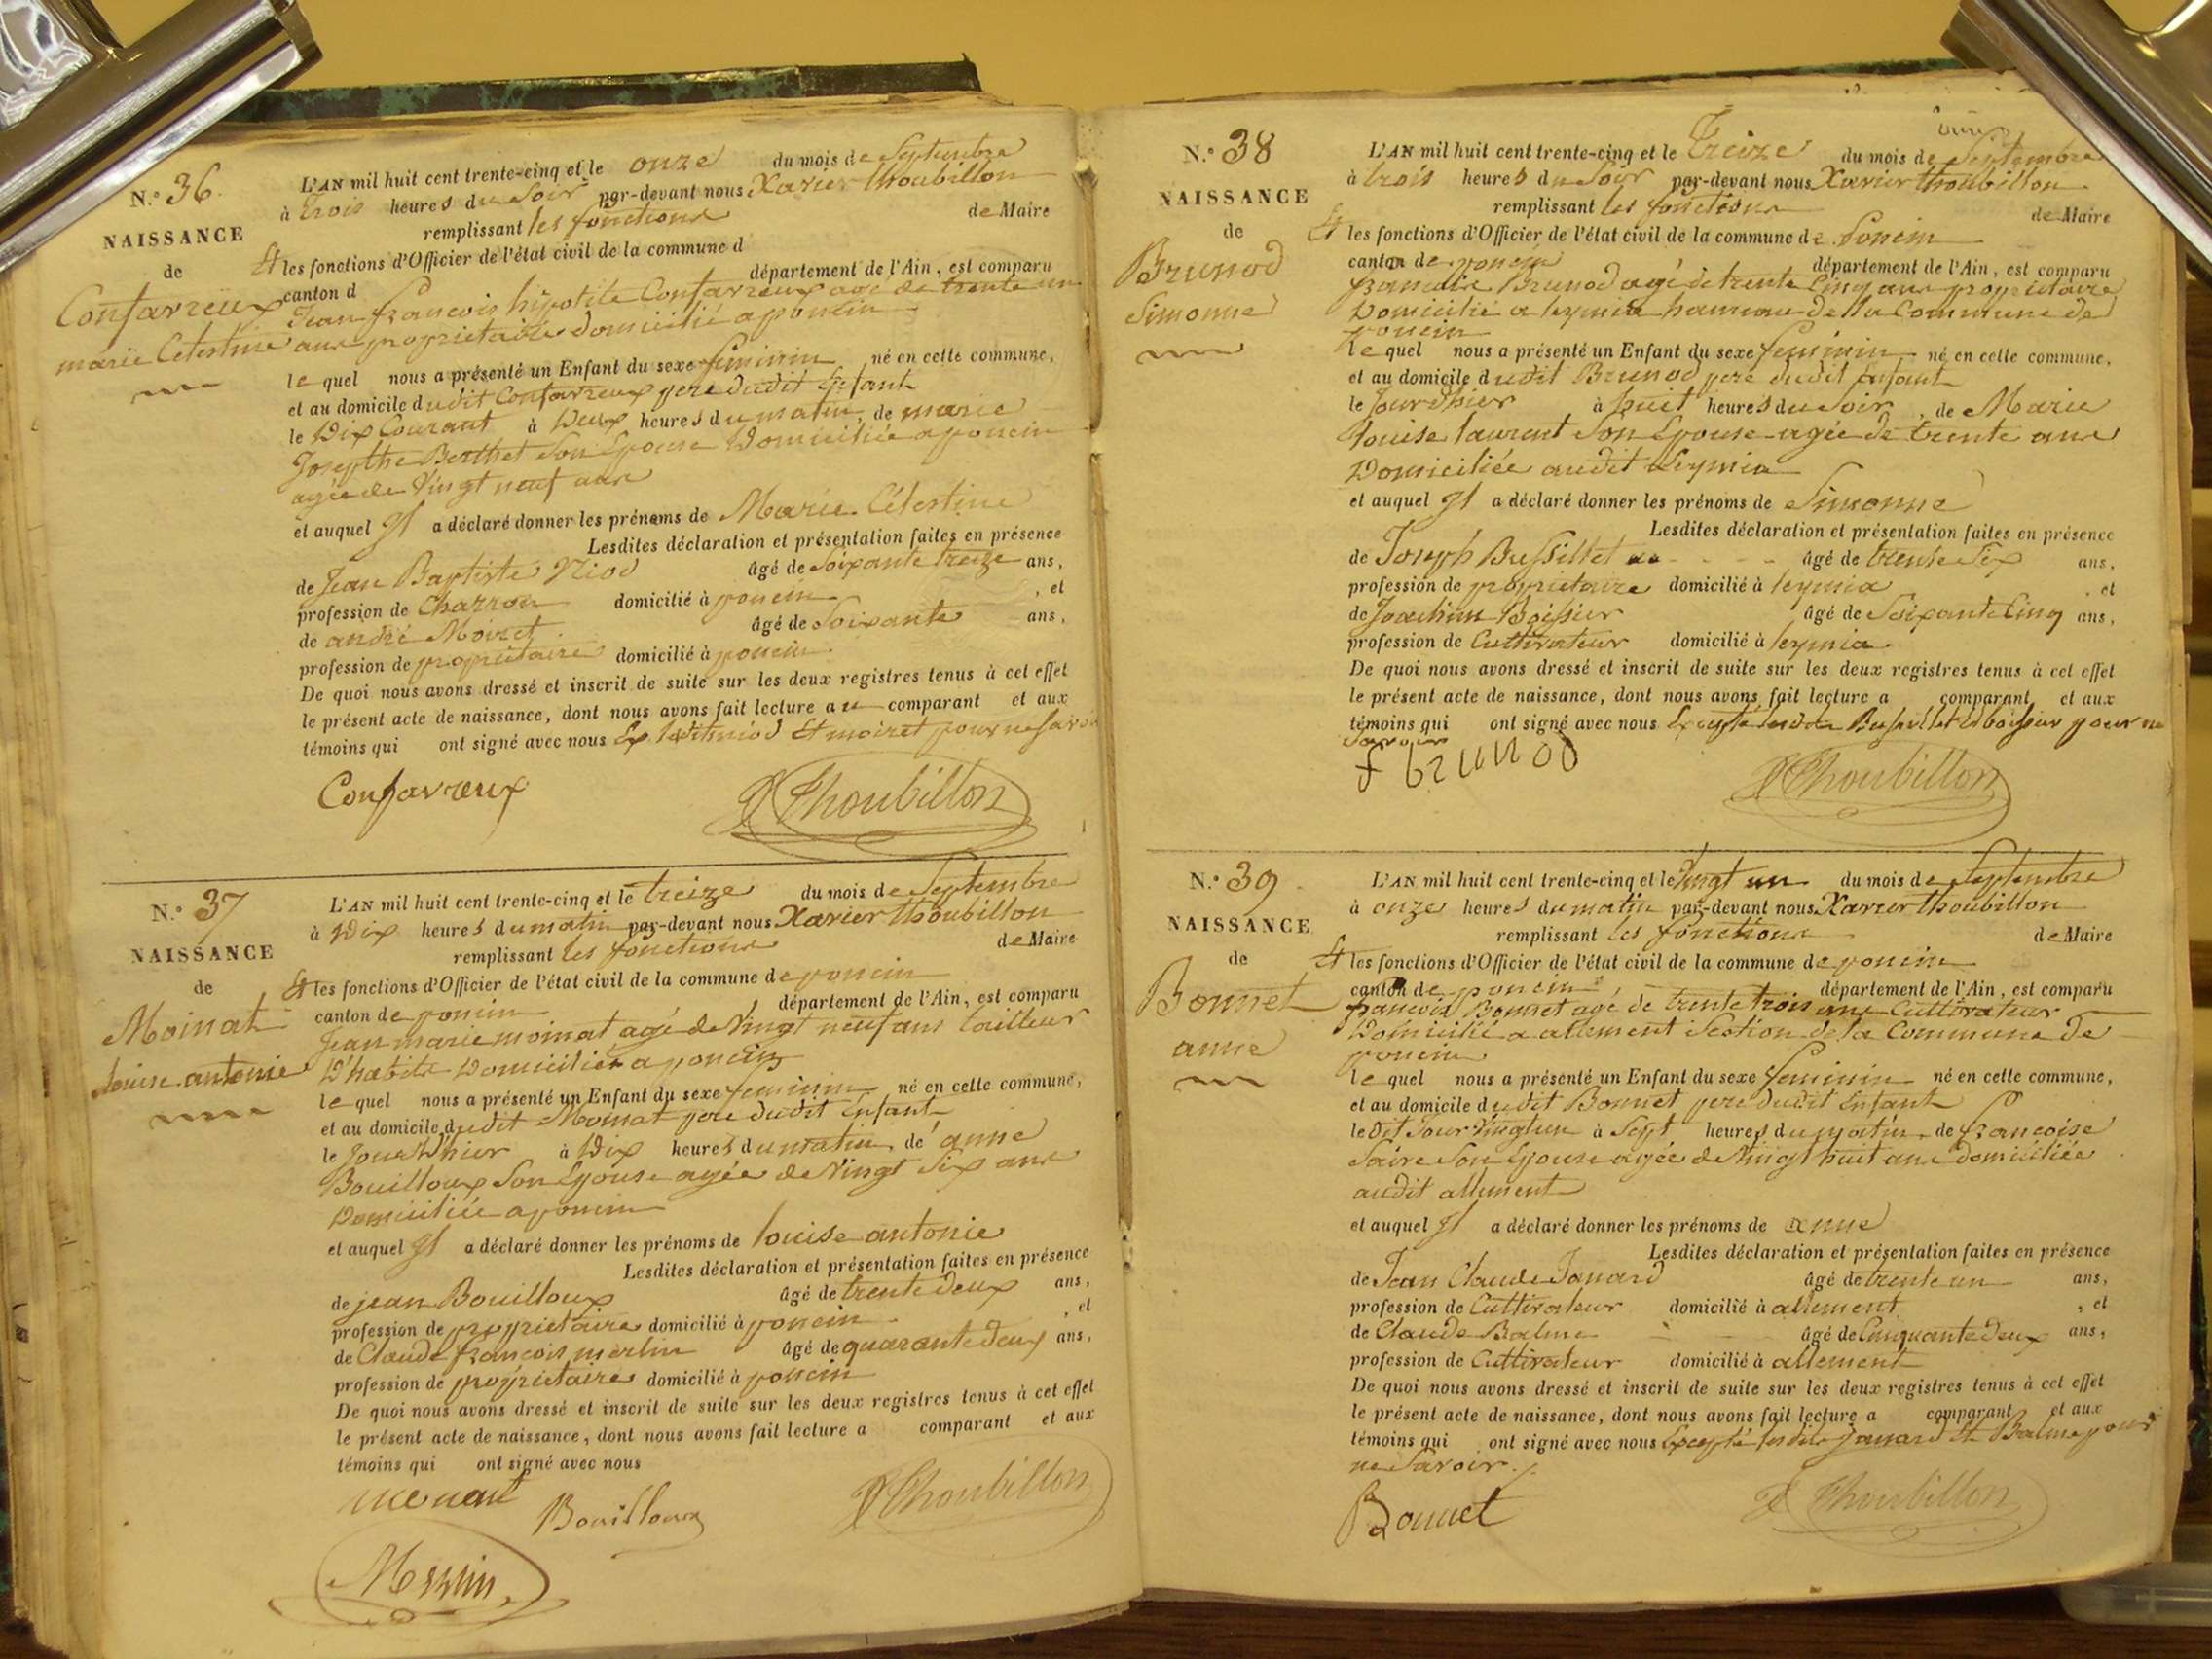 N.° 36.
NAISSANCE
de
Confavreux
marie Célestine
L'AN mil huit cent trente-cinq et le onze du mois de Septembre
à trois heures du Soir par-devant nous Xavier thoubillon
remplissant les fonctions de Maire
Et les fonctions d'Officier de l'état civil de la commune d
canton d département de l'Ain, est comparu
Jean françois hipolite Confavreux agé de trente un
ans propriétaire domicilié a poncin
le quel nous a présenté un Enfant du sexe feminin né en cette commune,
et au domicile dudit Confavreux pere dudit Enfant
le Dix Courant à Deux heures du matin, de marie
Josephte Berthet Son Epouse Domiciliée a poncin
agée de Vingt neuf ans
et auquel Il a déclaré donner les prénoms de Marie Célestine
Lesdites déclaration et présentation faites en présence
de Jean Baptiste Niod âgé de Soixante treize ans,
profession de Charron domicilié à poncin, et
de andré Moiret âgé de Soixante ans,
profession de propriétaire domicilié à poncin.
De quoi nous avons dressé et inscrit de suite sur les deux registres tenus à cet effet
le présent acte de naissance, dont nous avons fait lecture au comparant et aux
témoins qui ont signé avec nous Ex lesdits niod Et moiret pour ne Savoir
Confavreux Thoubillon
N.° 37
NAISSANCE
de
Moinat
louise antonie
L'AN mil huit cent trente-cinq et le treize du mois de Septembre
à Dix heures du matin par-devant nous Xavier thoubillon
remplissant les fonctions de Maire
Et les fonctions d'Officier de l'état civil de la commune de poncin
canton de poncin département de l'Ain, est comparu
Jean marie moinat agé de Vingt neuf ans tailleur
D'habits Domicilié a poncin
le quel nous a présenté un Enfant du sexe feminin né en cette commune,
et au domicile dudit Moinat pere dudit Enfant
le Jour D'hier à Dix heures du matin, de anne
Bouilloux Son Epouse agée de Vingt Six ans
Domiciliée a poncin
et auquel Il a déclaré donner les prénoms de louise antonie
Lesdites déclaration et présentation faites en présence
de jean Bouilloux âgé de trente Deux ans,
profession de propriétaire domicilié à poncin, et
de Claude françois merlin âgé de quarante Deux ans,
profession de propriétaire domicilié à poncin
De quoi nous avons dressé et inscrit de suite sur les deux registres tenus à cet effet
le présent acte de naissance, dont nous avons fait lecture a comparant et aux
témoins qui ont signé avec nous
Bouilloux Thoubillon
N.° 38
NAISSANCE
de
Brunod
Simonne
L'AN mil huit cent trente-cinq et le Treize du mois de Septembre
à trois heures du Soir par-devant nous Xavier thoubillon
remplissant les fonctions de Maire
Et les fonctions d'Officier de l'état civil de la commune de Poncin
canton de poncin département de l'Ain, est comparu
Brunod agé de trente Cinq ans propriétaire
Domicilié a leymia hameau de la Commune de
poncin
le quel nous a présenté un Enfant du sexe feminin né en cette commune,
et au domicile dudit Brunod pere dudit enfant
le Jour D'hier à huit heures du Soir, de Marie
louise laurent Son Epouse agée de trente ans
Domiciliée audit Leymia
et auquel Il a déclaré donner les prénoms de Simonne
Lesdites déclaration et présentation faites en présence
de Joseph Bussillet âgé de trente Six ans,
profession de propriétaire domicilié à leymia, et
de Joachim Boissier âgé de Soixante Cinq ans,
profession de Cultivateur domicilié à leymia.
De quoi nous avons dressé et inscrit de suite sur les deux registres tenus à cet effet
le présent acte de naissance, dont nous avons fait lecture a comparant et aux
témoins qui ont signé avec nous Excepté lesdits Bussillet Et boissier pour ne
Savoir
f brunod Thoubillon
N.° 39
NAISSANCE
de
Bonnet
anne
L'AN mil huit cent trente-cinq et le Vingt un du mois de Septembre
à onze heures du matin par-devant nous Xavier thoubillon
remplissant les fonctions de Maire
Et les fonctions d'Officier de l'état civil de la commune de poncin
canton de poncin département de l'Ain, est comparu
françois Bonnet agé de trente trois ans Cultivateur
Domicilié a allement Section de la Commune de
poncin
le quel nous a présenté un Enfant du sexe feminin né en cette commune,
et au domicile dudit Bonnet pere dudit Enfant
le Dit Jour Vingt un à Sept heures du matin, de francoise
Saive Son Epouse agée de Vingt huit ans domiciliée
audit allement
et auquel Il a déclaré donner les prénoms de anne
Lesdites déclaration et présentation faites en présence
de Jean Claude Janard âgé de trente un ans,
profession de Cultivateur domicilié à allement, et
de Claude Balme âgé de Cinquante Deux ans,
profession de Cultivateur domicilié à allement
De quoi nous avons dressé et inscrit de suite sur les deux registres tenus à cet effet
le présent acte de naissance, dont nous avons fait lecture a comparant et aux
témoins qui ont signé avec nous Excepté lesdits Janard Et Balme pour
ne Savoir ./.
Bonnet Thoubillon